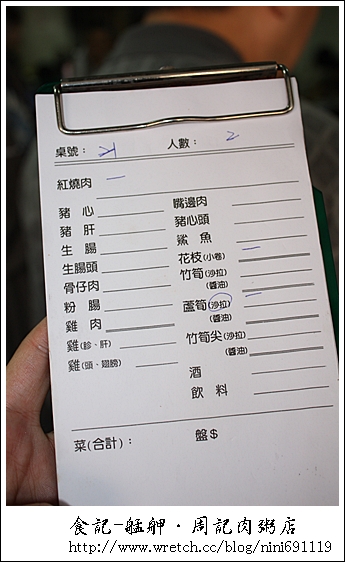 桌號： 人數： 2
紅燒肉 一
嘴邊肉
豬心 豬心頭
豬肝 鯊魚
生腸 花枝(小卷) 一
生腸頭 竹筍(沙拉)
(醬油)
骨仔肉
粉腸 蘆筍(沙拉) 一
(醬油)
雞肉 竹筍尖(沙拉)
(醬油)
雞(胗、肝)
雞(頭、翅膀) 酒
飲料
菜(合計)： 盤$
食記-艋舺·周記肉粥店
http://www.wretch.cc/blog/nini691119